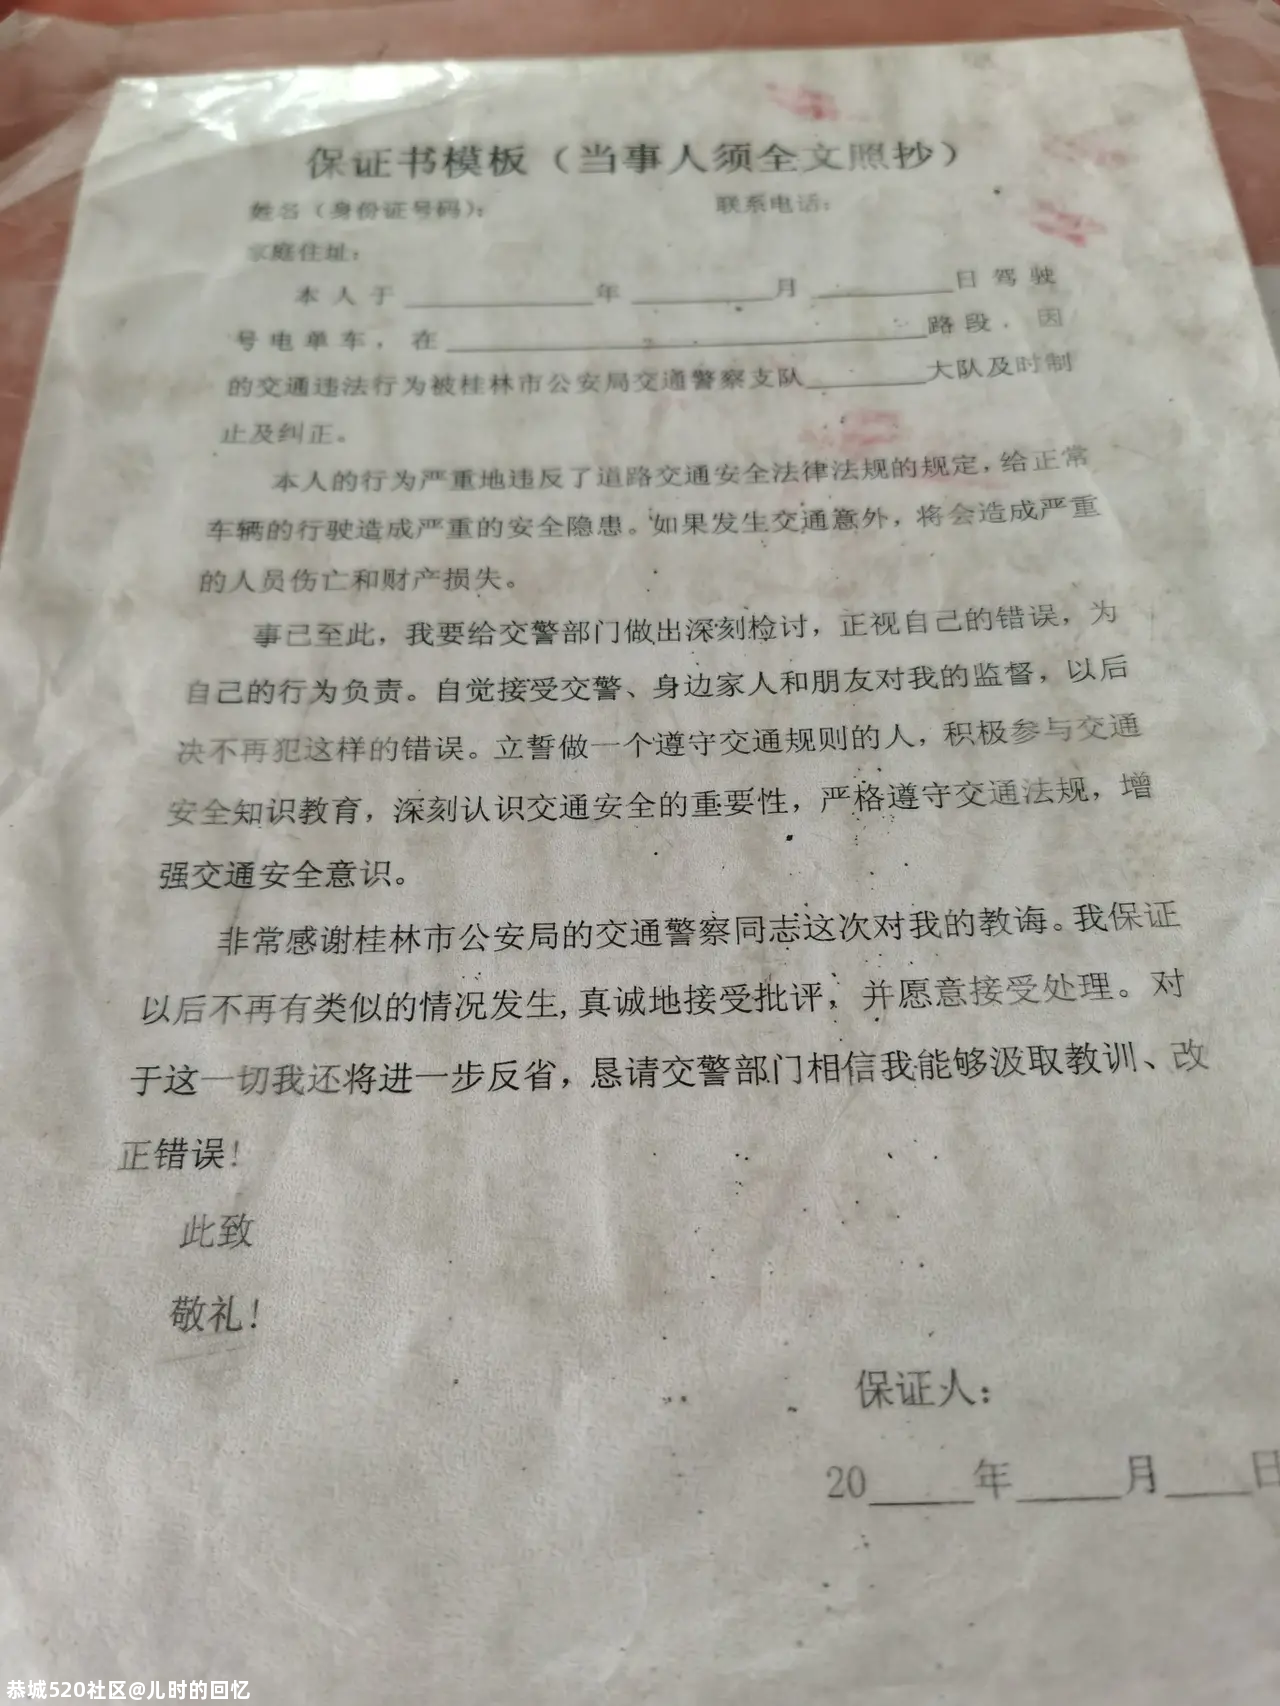 保证书模板（当事人须全文照抄）
姓名（身份证号码）： 联系电话：
家庭住址：
本人于____________年_________月_________日驾驶
号电单车，在______________________________路段，因
的交通违法行为被桂林市公安局交通警察支队________大队及时制
止及纠正。
本人的行为严重地违反了道路交通安全法律法规的规定，给正常
车辆的行驶造成严重的安全隐患。如果发生交通意外，将会造成严重
的人员伤亡和财产损失。
事已至此，我要给交警部门做出深刻检讨，正视自己的错误，为
自己的行为负责。自觉接受交警、身边家人和朋友对我的监督，以后
决不再犯这样的错误。立誓做一个遵守交通规则的人，积极参与交通
安全知识教育，深刻认识交通安全的重要性，严格遵守交通法规，增
强交通安全意识。
非常感谢桂林市公安局的交通警察同志这次对我的教诲。我保证
以后不再有类似的情况发生,真诚地接受批评，并愿意接受处理。对
于这一切我还将进一步反省，恳请交警部门相信我能够汲取教训、改
正错误！
此致
敬礼！
保证人：
20____年____月___日
恭城520社区@儿时的回忆